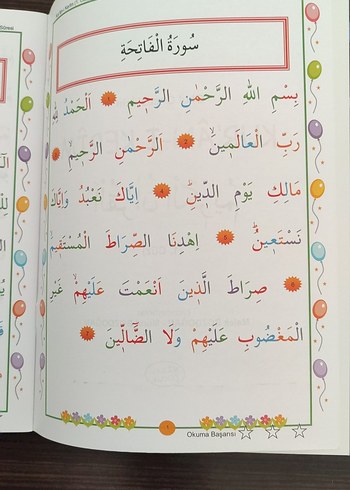 سُورَةُ الْفَاتِحَةِ
بِسْمِ اللّٰهِ الرَّحْمٰنِ الرَّحٖيمِ ﴿1﴾ اَلْحَمْدُ لِلّٰهِ
رَبِّ الْعَالَمٖينَۙ ﴿2﴾ اَلرَّحْمٰنِ الرَّحٖيمِۙ
مَالِكِ يَوْمِ الدّٖينِۜ ﴿4﴾ اِيَّاكَ نَعْبُدُ وَاِيَّاكَ
نَسْتَعٖينُۜ ﴿5﴾ اِهْدِنَا الصِّرَاطَ الْمُسْتَقٖيمَۙ
﴿6﴾ صِرَاطَ الَّذٖينَ اَنْعَمْتَ عَلَيْهِمْۙ غَيْرِ
الْمَغْضُوبِ عَلَيْهِمْ وَلَا الضَّٓالّٖينَ ﴿7﴾
Okuma Başarısı